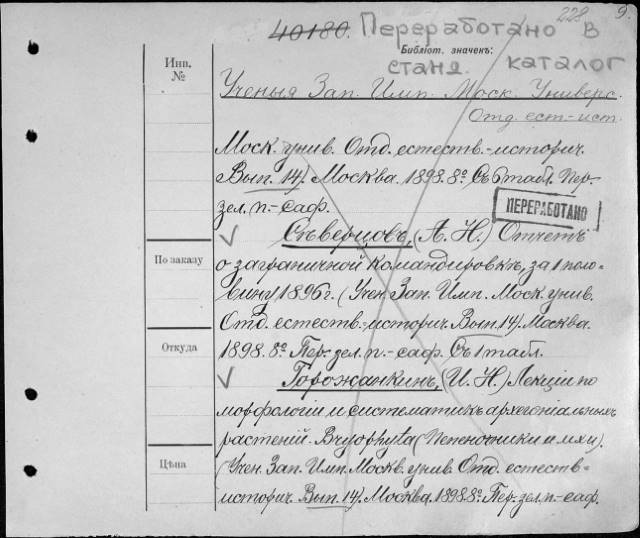 40180. Переработано в 228 9.
Библіот. значекъ:
стан. каталог
Инв.
№
Ученыя Зап. Имп. Моск. Универс.
Отд. ест-ист.
Моск. унив. Отд. естеств.-историч.
Вып. 14). Москва. 1898. 8º. Съ 6 табл. Пер-
зел. п.-саф.
ПЕРЕРАБОТАНО
Сѣверцовъ, (А. Н.) Отчетъ
По заказу
о заграничной командировкѣ, за 1 поло-
вину 1896 г. (Учен. Зап. Имп. Моск. унив.
Отд. естеств.-историч. Вып. 14). Москва.
Откуда
1898. 8º. Пер. зел. п.-саф. Съ 1 табл.
Горожанкинъ, (И. Н.) Лекціи по
морфологіи и систематикѣ архегоніальныхъ
растеній. Bryophyta (Печеночники и мхи).
Цѣна
(Учен. Зап. Имп. Москв. унив. Отд. естеств.-
историч. Вып. 14). Москва. 1898. 8º. Пер. зел. п.-саф.